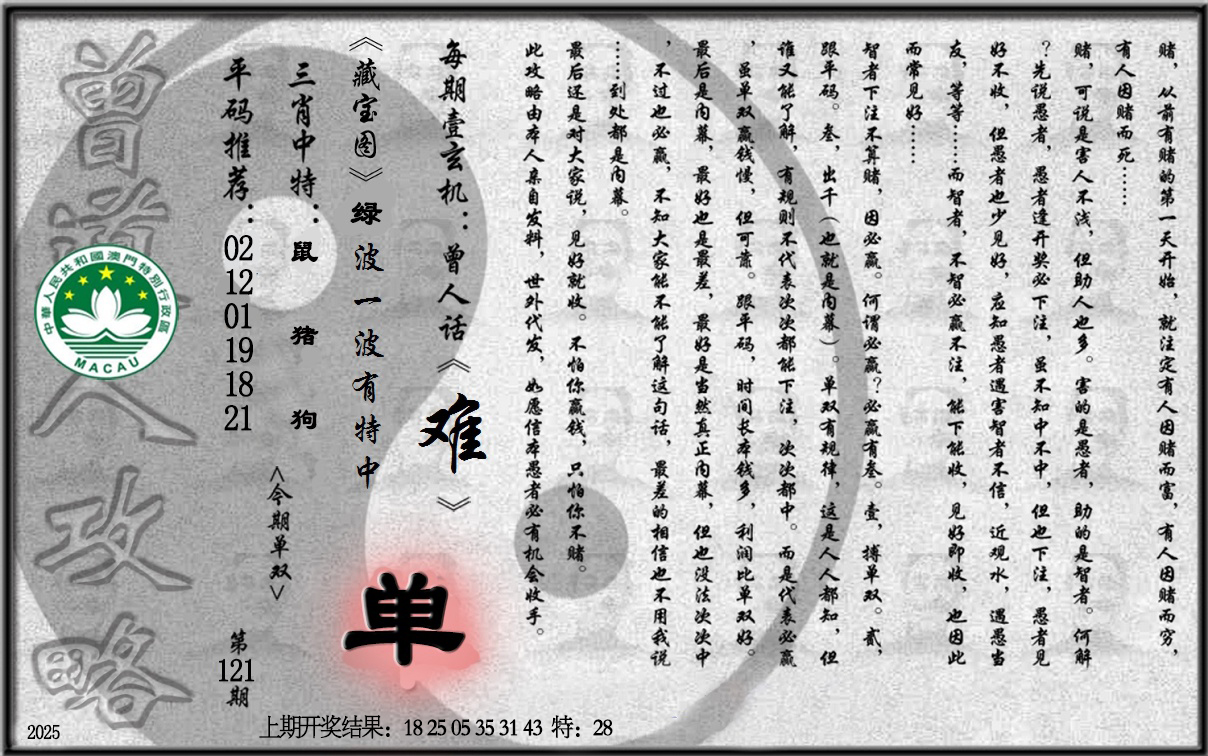 赌，从前有赌的第一天开始，就注定有人因赌而富，有人因赌而穷，
有人因赌而死……
赌，可说是害人不浅，但助人也多。害的是愚者，助的是智者。何解
？先说愚者，愚者逢开奖必下注，虽不知中不中，但也下注，愚者见
好不收，但愚者也少见好，应知愚者遇害智者不信，近观水，遇愚当
友，等等……而智者，不智必赢不注，能下能收，见好即收，也因此
而常见好……
智者下注不算赌，因必赢。何谓必赢？必赢有叁。壹，搏单双。贰，
跟平码。叁，出千（也就是内幕）。单双有规律，这是人人都知，但
谁又能了解，有规则不代表次次都能下注，次次都中。而是代表必赢
，虽单双赢钱慢，但可靠。跟平码，时间长本钱多，利润比单双好。
最后是内幕，最好也是最差，最好是当然真正内幕，但也没法次次中
，不过也必赢，不知大家能不能了解这句话，最差的相信也不用我说
……到处都是内幕。
最后还是对大家说，见好就收。不怕你赢钱，只怕你不赌。
此攻略由本人亲自发料，世外代发，如愿信本愚者必有机会收手。
每期壹玄机：曾人话《难》
《藏宝图》绿波一波有特中
单
三肖中特：鼠 猪 狗
<今期单双>
平码推荐：02 12 01 19 18 21
第121期
曾道人攻略
中華人民共和國澳門特別行政區
MACAU
2025
上期开奖结果：18 25 05 35 31 43 特：28